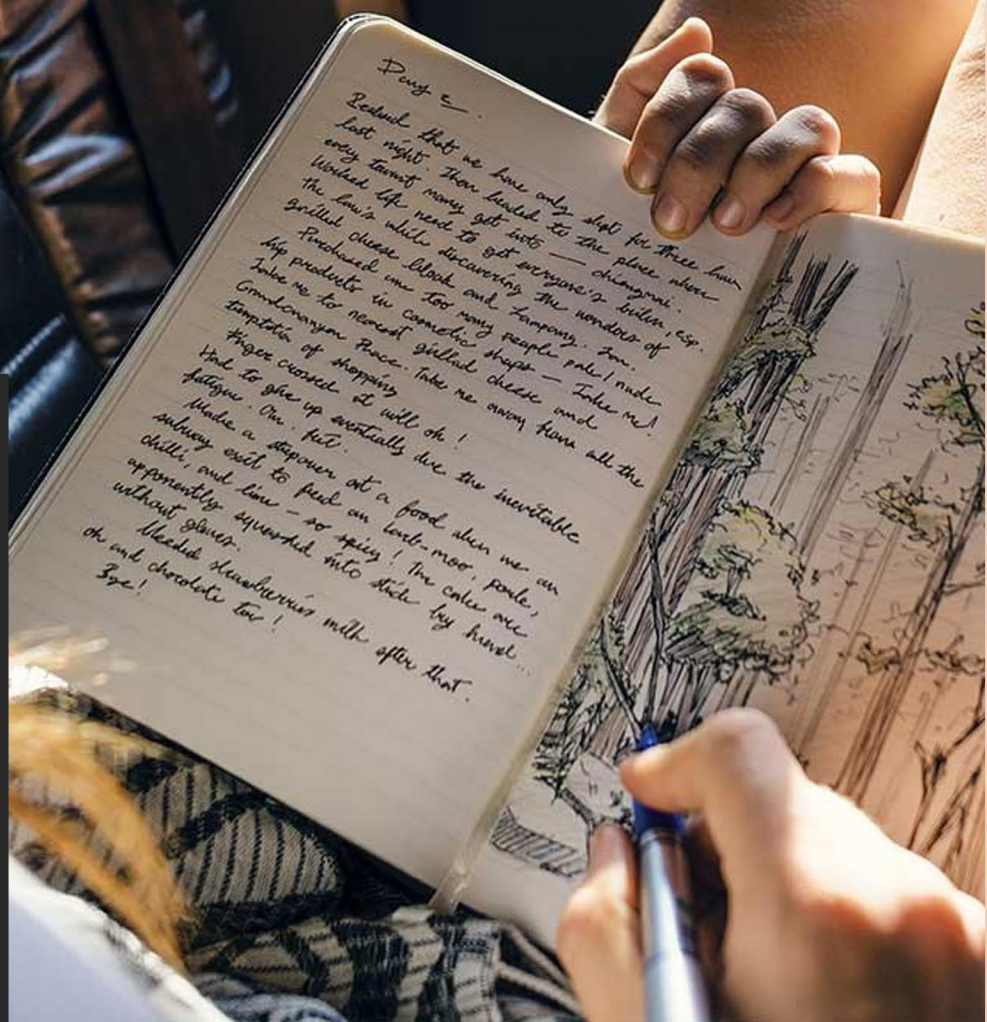 that we have only slept for three hours
last night. Then headed to the place where
every tourist many get into — chiangmai.
Worked life need to get everyone's
the law's while discovering the wonders of
grilled cheese block and Lampang.
Purchased une too many people pale / nude
lip products in cosmetic shops — Take me!
Take me to nearest grilled cheese and
Peace. Take me away from all the
of shopping
Finger crossed it will oh!
Had to give up eventually due the inevitable
fatigue. On. fut.
Made a stopover at a food when we an
subway exit to feed on larb-moo, pork,
chilli, and lime — so spicy! The cake are
apparently squeezed into stick by hand...
without gloves.
Needed strawberries milk after that.
oh and chocolate too!
Bye!